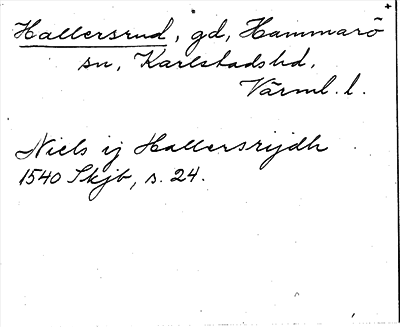 Hallersrud, gd, Hammarö
sn, Karlstads hd,
Värml. l.
Niels ij Hallersrijdh
1540 Skjb, s. 24.